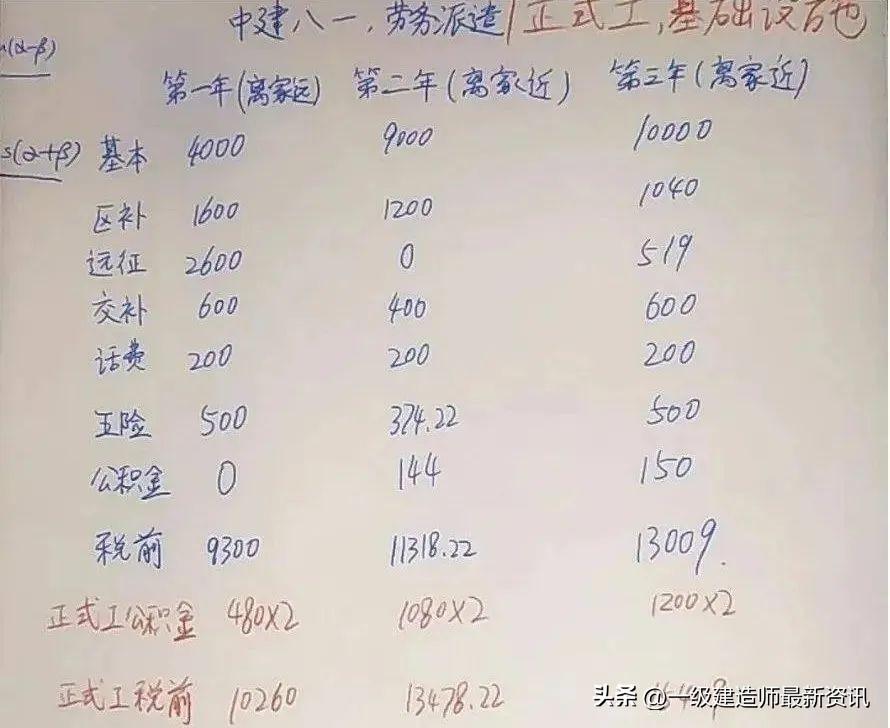 中建八一,劳务派遣/正式工,基础设施岗
(α-β)
第一年(离家远) 第二年(离家近) 第三年(离家近)
s(α+β)
基本 4000 9000 10000
区补 1600 1200 1040
远征 2600 0 519
交补 600 400 600
话费 200 200 200
五险 500 374.22 500
公积金 0 144 150
税前 9300 11318.22 13009.
正式工公积金 480×2 1080×2 1200×2
正式工税前 10260 13478.22
头条 @一级建造师最新资讯